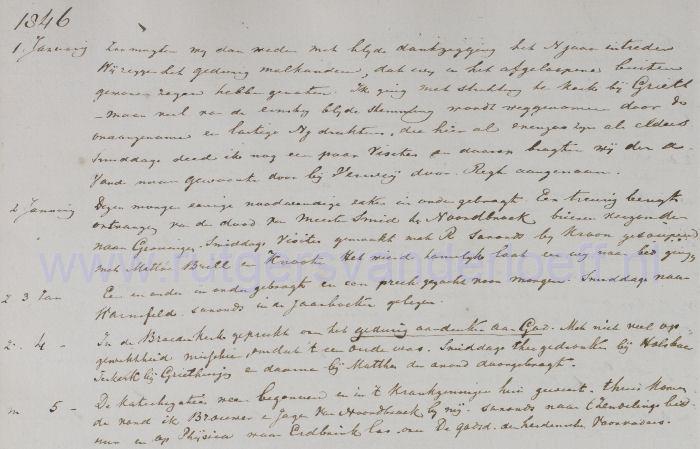 1846
1 Januarij Zoo mogten wij dan weder met blijde dankzegging het Njaar intreden
Wij zeggen het gedurig malkanderen, dat wij in het afgeloopene buiten
gewonen zegen hebben genoten. Ik ging met te kerk bij Grieth
- maar veel van de blijde stemming wordt weggenomen door de
onaangename en lastige Nj drukten, die hier al erger zijn als elders
Smiddags deed ik nog een paar Visites en daarna bragten wij den a-
vond naar gewoonte door bij door. Regt aangenaam.
2 Januarij Dezen morgen eenige noodwendige zaken in orde gebragt. Een treurig berigt
ontvangen van de dood van Meester Smid te Noordbroek brieven
naar Groningen. Smiddags Visites gemaakt met R savonds bij Kroon gesoupeerd
met Matthes Brill het werd laat en wij naar bed
Z 3 Jan Een en ander in orde gebragt en een preek gezocht voor morgen. Smiddags naar
Warnsfeld savonds in de Jaarboeken gelezen.
Z. 4 - In de Broederkerk gepreekt over het gedurig aandenken aan God. Met niet veel op-
gewektheid misschien, omdat 't een oude was. Smiddags thee gedronken bij
en daarna bij Matthes de avond doorgebragt.
m 5 - De Katechizatien weer begonnen en in 't geweest. thuis komen
de vond ik Brouwer en Jager van Noordbroek bij mij. savonds naar
nur en op Physica waar Erdbrink las over De godsd. der heidensche Voorvaders.
www.rutgersvanderloeff.nl